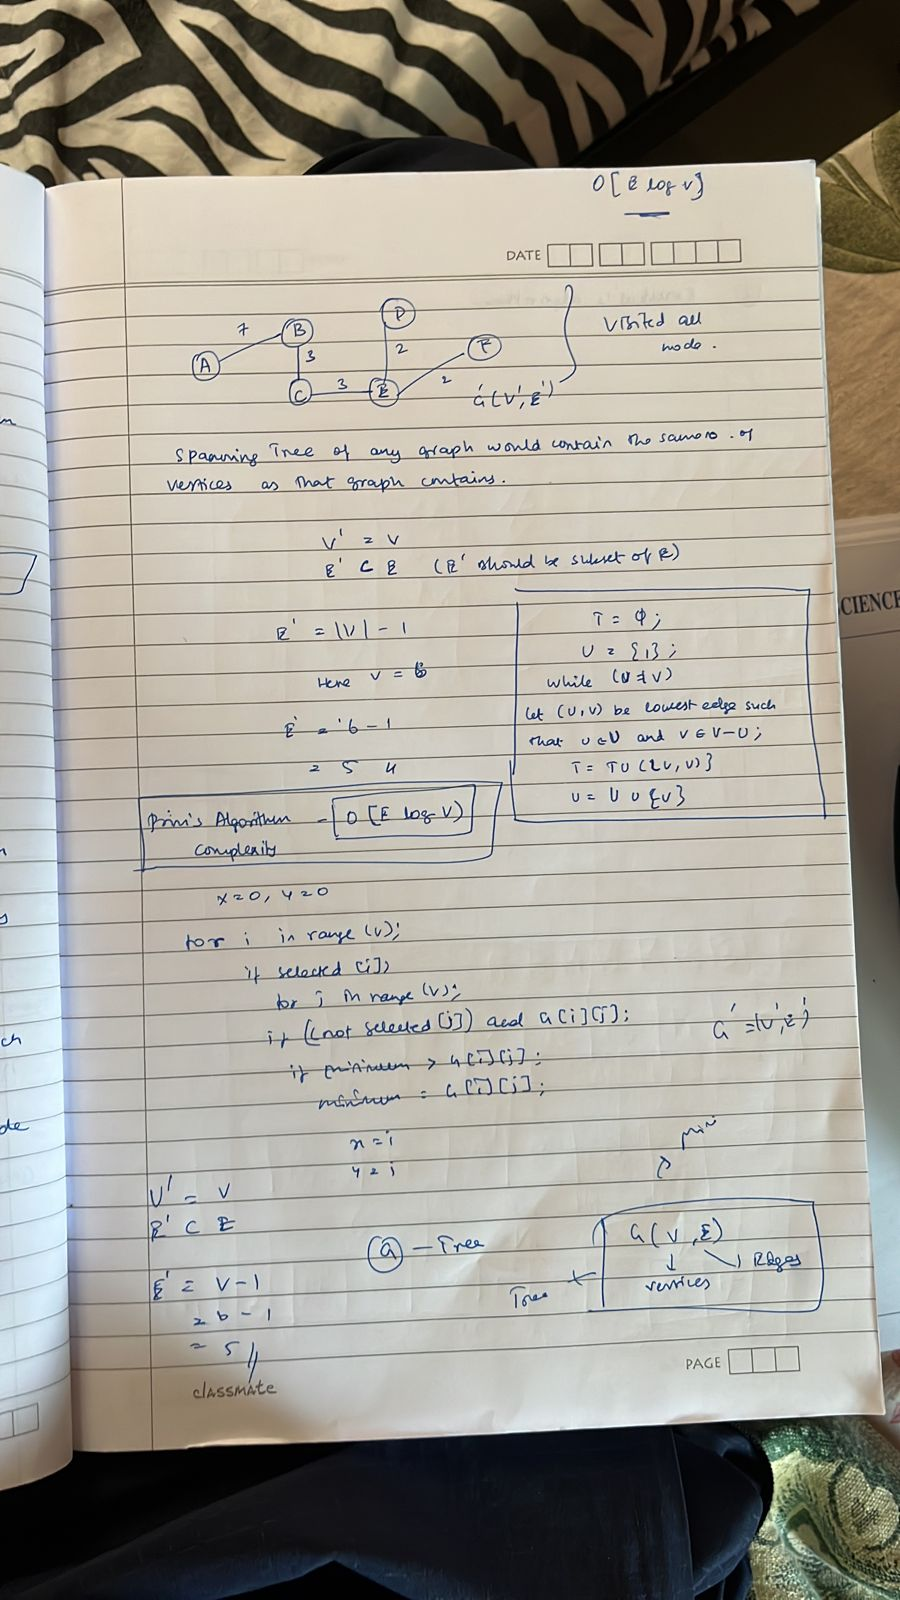 O[E log v]
DATE
7
B
D
A
3
2
F
visited all
node.
C
3
E
2
G'(V',E')
Spanning Tree of any graph would contain the same no. of
vertices as that graph contains.
V' = V
E' C E (E' should be subset of E)
E' = |V| - 1
Here V = 6
E' = 6 - 1
= 5
T = Φ;
U = {1};
while (U ≠ V)
let (u, v) be lowest edge such
that u ∈ U and v ∈ V-U;
T = T U {(u, v)}
U = U U {v}
Prim's Algorithm - O [E log V)
complexity
x=0, y=0
for i in range (v);
if selected [i];
for j in range (v);
if ((not selected [j]) and G[i][j];
if minimum > G[i][j];
minimum = G[i][j];
x = i
y = j
G' = (V', E')
min
V' = V
E' C E
G - Tree
G(V, E)
Edges
vertices
Tree
E' = V - 1
= 6 - 1
= 5 //
classmate
PAGE
CIENCE
ch
de